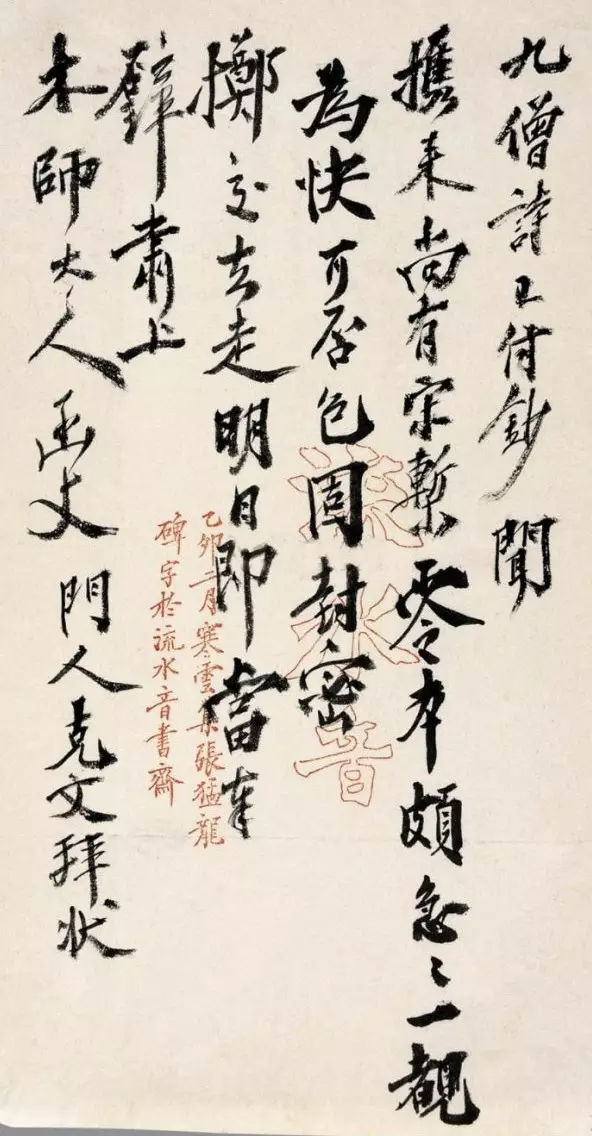 九僧詩已付鈔聞
攜来尚有宋槧零本頗急〻一覩
為快可否包固封密
擲交去走明日即當奉
璧肅上
木師大人函丈門人克文拜状
流水音
乙卯二月寒雲集張猛龍
碑字於流水音書齋